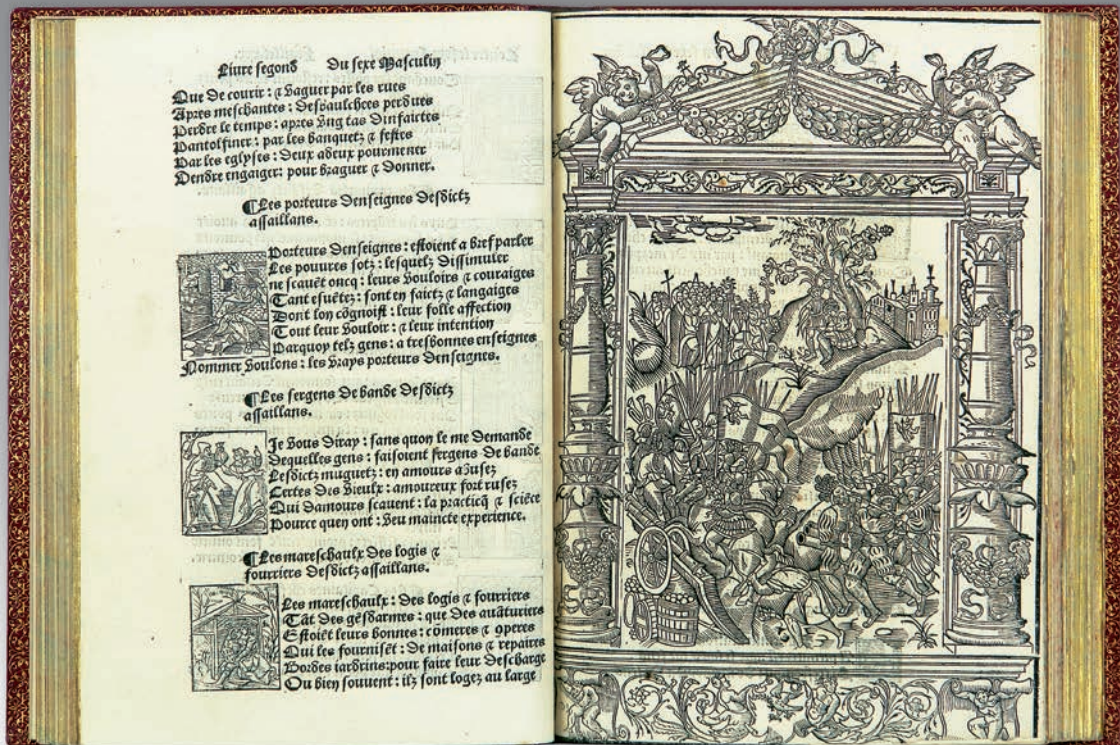 Livre segond Du sexe Masculin
Que de courir: & vaguer par les rues
Apres meschantes: desbaulchees perdues
Perdre le temps: apres vng tas dinfaictes
Pantolfiner: par les banquetz & festes
Par les eglyses: deux adeux pourmener
Vendre engaiger: pour braguer & donner.
¶Les porteurs denseignes desdictz
assaillans.
Porteurs denseignes: estoient a bref parler
Les pouures sotz: lesquelz dissimuler
ne scauẽt oncq: leurs vouloirs & couraiges
Tant esuẽtez: sont en faictz & langaiges
Dont lon cõgnoist: leur folle affection
Tout leur vouloir: & leur intention
Parquoy telz gens: a tresbonnes enseignes
Nommer voulons: les vrays porteurs denseignes.
¶Les sergens de bande desdictz
assaillans.
Je vous diray: sans quon le me demande
Dequelles gens: faisoient sergens de bande
Lesdictz muguetz: en amours abusez
Certes des vieulx: amoureux fort rusez
Qui damours scauent: la practicq̃ & sciẽce
Pource quen ont: veu maincte experience.
¶Les mareschaulx des logis &
fourriers desdictz assaillans.
Les mareschaulx: des logis & fourriers
Tãt des gẽsdarmes: que des auãturiers
Estoiẽt leurs bonnes: cõmeres & operes
Qui les fournisẽt: de maisons & repaires
Bordes iardrins: pour faire leur descharge
Ou bien souuent: ilz sont logez au large